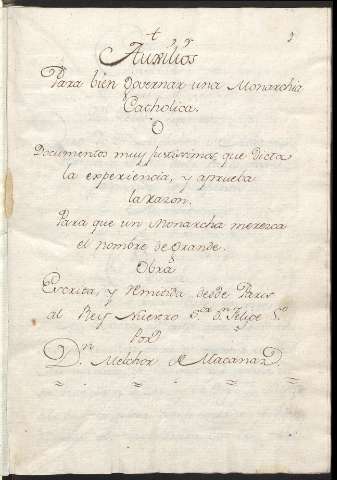 Auxilios
Para bien Governar una Monarchia
Catholica.
O
Documentos muy justissimos, que dicta
la experiencia, y aprueba
la razon,
Para que un Monarcha merezca
el nombre de Grande.
Obra
Escrita, y remitida desde Paris
al Rey Nuestro S.or D.n Felipe 5.o
Por
D.n Melchor de Macanaz